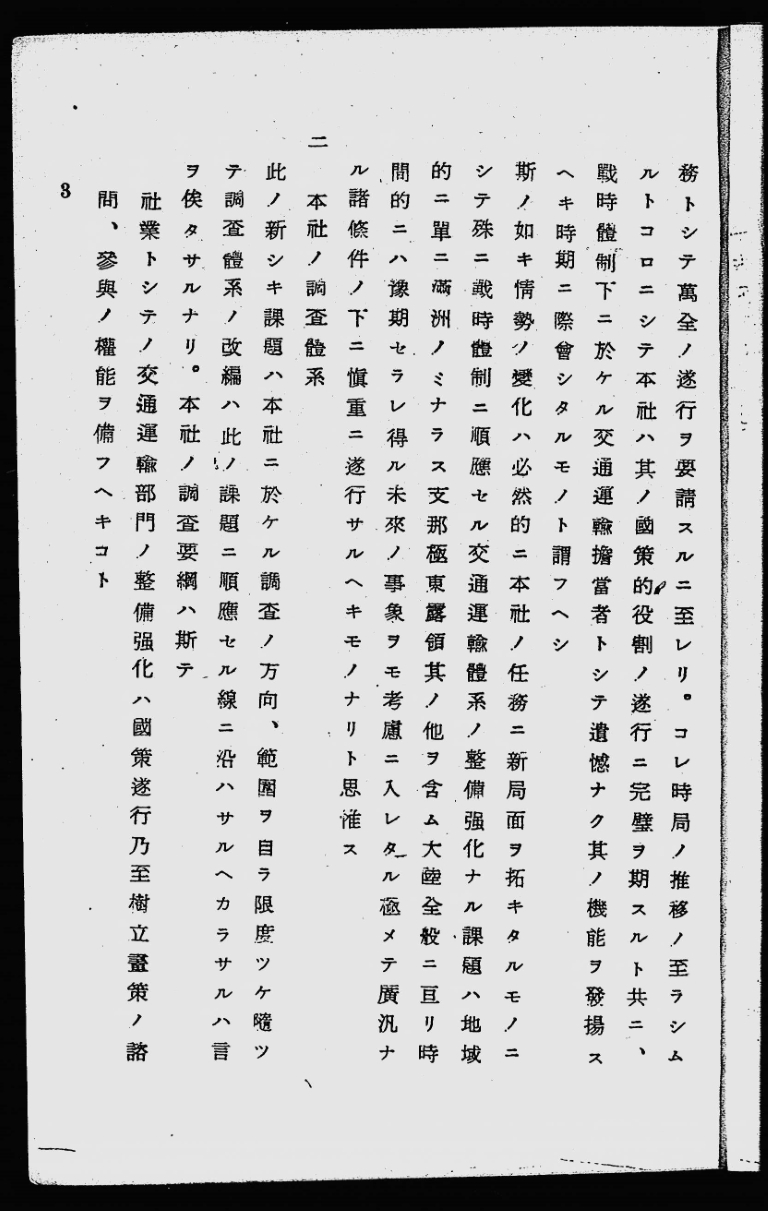 務トシテ萬全ノ遂行ヲ要請スルニ至レリ。コレ時局ノ推移ノ至ラシム
ルトコロニシテ本社ハ其ノ國策的役割ノ遂行ニ完璧ヲ期スルト共ニ、
戰時體制下ニ於ケル交通運輸擔當者トシテ遺憾ナク其ノ機能ヲ發揚ス
ヘキ時期ニ際會シタルモノト謂フヘシ
斯ノ如キ情勢ノ變化ハ必然的ニ本社ノ任務ニ新局面ヲ拓キタルモノニ
シテ殊ニ戰時體制ニ順應セル交通運輸體系ノ整備强化ナル課題ハ地域
的ニ單ニ滿洲ノミナラス支那極東露領其ノ他ヲ含ム大陸全般ニ亘リ時
間的ニハ豫期セラレ得ル未來ノ事象ヲモ考慮ニ入レタル極メテ廣汎ナ
ル諸條件ノ下ニ愼重ニ遂行サルヘキモノナリト思惟ス
二 本社ノ調査體系
此ノ新シキ課題ハ本社ニ於ケル調査ノ方向、範圍ヲ自ラ限度ツケ隨ツ
テ調査體系ノ改編ハ此ノ課題ニ順應セル線ニ沿ハサルヘカラサルハ言
ヲ俟タサルナリ。本社ノ調査要綱ハ斯テ
社業トシテノ交通運輸部門ノ整備强化ハ國策遂行乃至樹立畫策ノ諮
問、參與ノ權能ヲ備フヘキコト
3